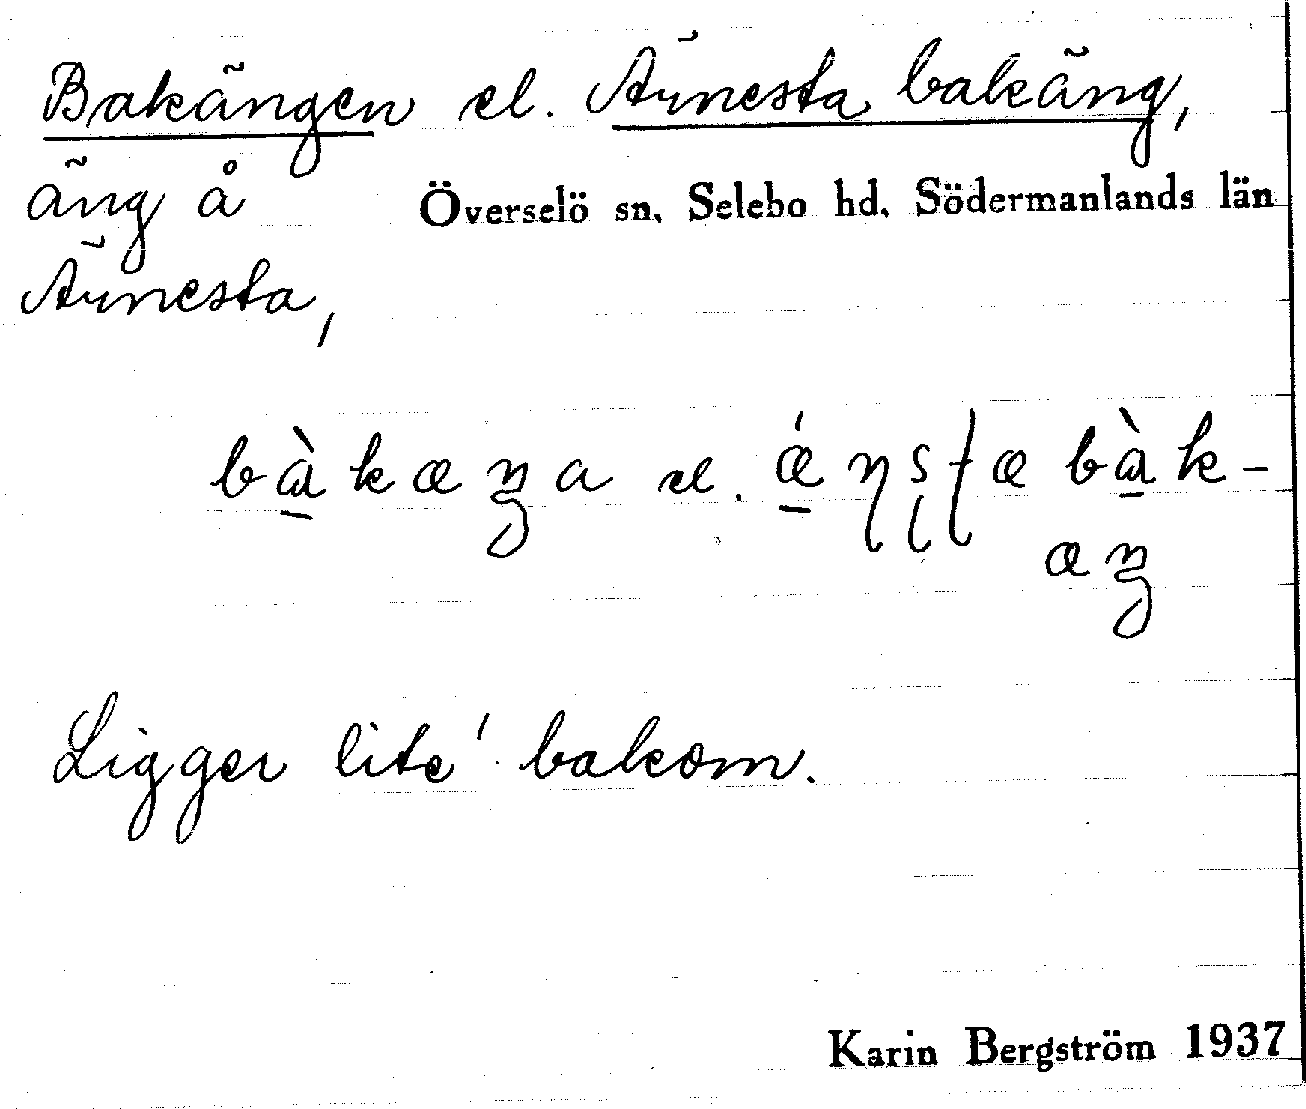 Bakängen el. Ärnesta bakäng,
äng å Överselö sn, Selebo hd, Södermanlands län
Ärnesta,
bàkæŋa el. ǽɳʂʈæ bàk-
æŋ
Ligger lite' bakom.
Karin Bergström 1937